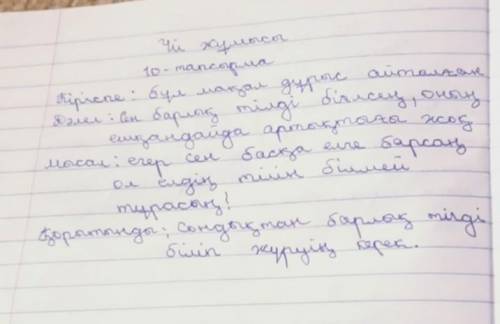 Үй жұмысы
10-тапсырма
Кіріспе: бұл мақал дұрыс айталған
Дәлел: Сен барлық тілді білсең, оның
ешқандайда артықтығы жоқ
Мысал: егер сен басқа елге барсаң
ол елдің тілін білмей
тұрасың!
Қорытынды: сондықтан барлық тілді
біліп жүруің керек.